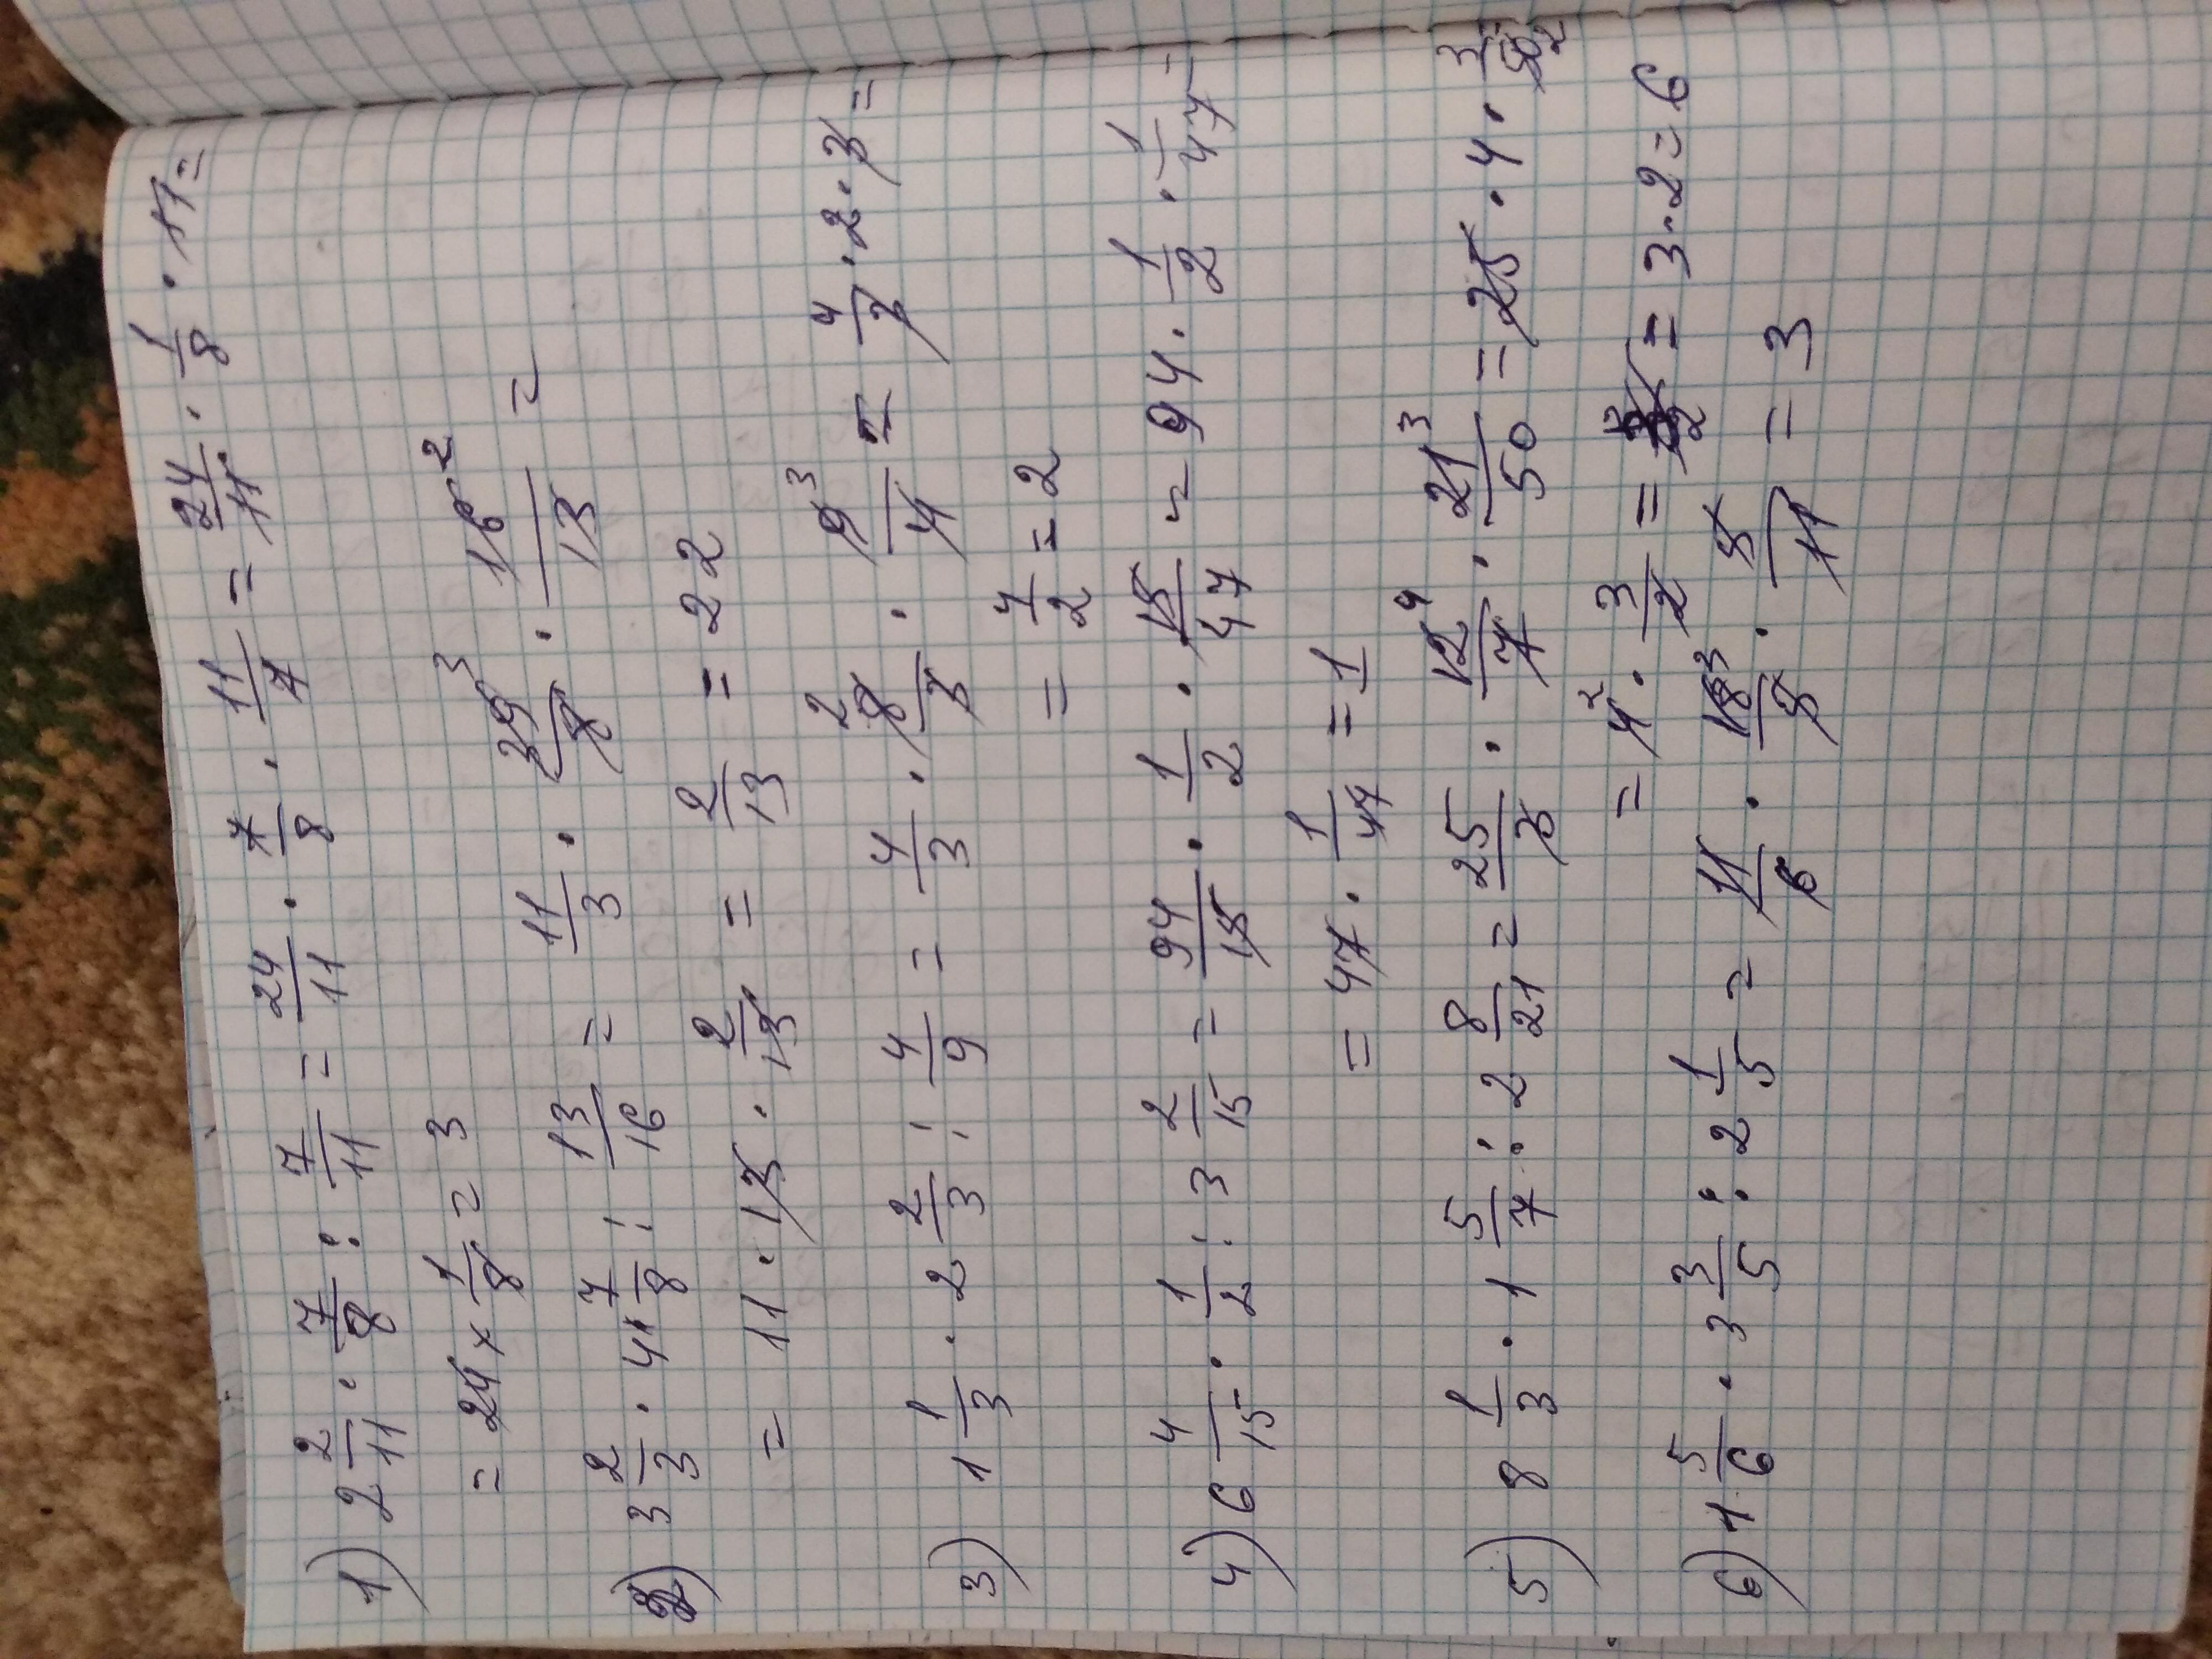 1) 2 2/11 · 7/8 : 7/11 = 24/11 · 7/8 · 11/7 = 24/11 · 1/8 · 11 =
= 24 × 1/8 = 3
2) 3 2/3 · 4 7/8 : 13/16 = 11/3 · 39 3/8 · 16 2/13 =
= 11 · 13 · 2/13 = 2/13 = 22
3) 1 1/3 · 2 2/3 : 4/9 = 4/3 · 8 2/3 · 9 3/4 = 4/2 · 2 · 3 =
= 4/2 = 2
4) 6 4/15 · 1/2 : 3 2/15 = 94/15 · 1/2 · 15/47 = 94 · 1/2 · 1/47 =
= 47 · 1/47 = 1
5) 8 1/3 · 1 5/7 : 2 8/21 = 25/3 · 12 4/7 · 21 3/50 = 25 · 4 · 3/50 2 =
= 4 2 · 3/2 = = 3 · 2 = 6
6) 1 5/6 · 3 3/5 : 2 1/5 = 11/6 · 18 3/5 · 5/11 = 3